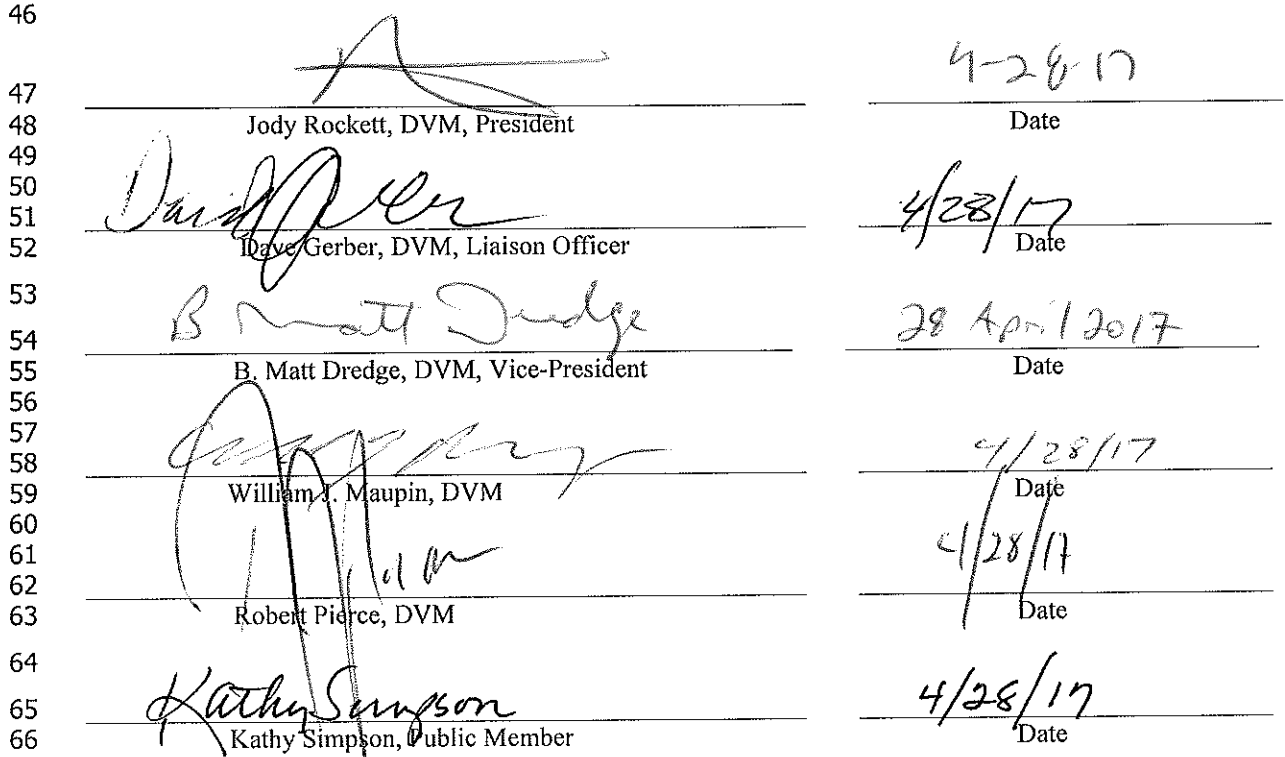 46
4-28-17
47
48 Jody Rockett, DVM, President Date
49
50
51 David Gerber 4/28/17
52 Dave Gerber, DVM, Liaison Officer Date
53
B Matt Dredge 28 April 2017
54
55 B. Matt Dredge, DVM, Vice-President Date
56
57
4/28/17
58
59 William J. Maupin, DVM Date
60
61 4/28/17
62
63 Robert Pierce, DVM Date
64
65 Kathy Simpson 4/28/17
66 Kathy Simpson, Public Member Date